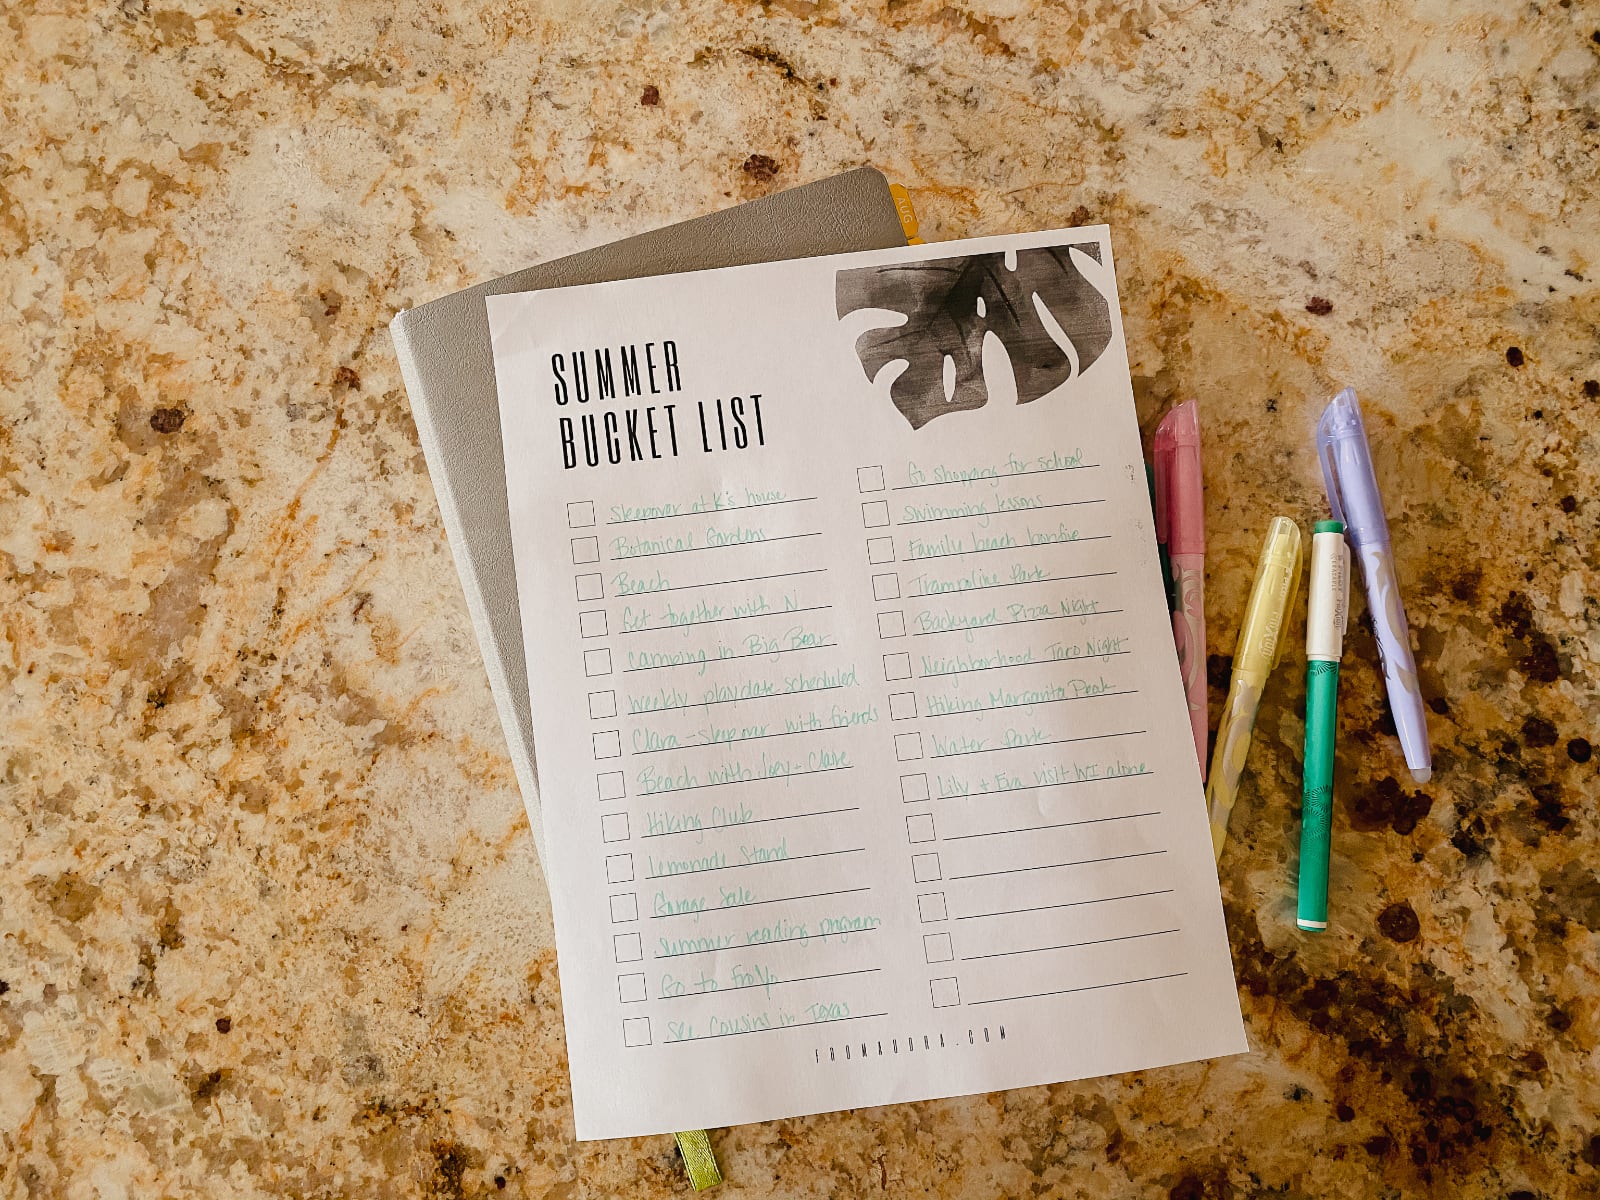 AUG
SUMMER
BUCKET LIST
Sleepover at K's house
Botanical Gardens
Beach
Get together with N
Camping in Big Bear
Weekly playdate scheduled
Clara - Sleepover with friends
Beach with Joey + Clare
Hiking Club
Lemonade Stand
Garage Sale
Summer reading program
Go to FroYo
See Cousins in Texas
Go shopping for school
Swimming lessons
Family beach bonfire
Trampoline Park
Backyard Pizza Night
Neighborhood Taco Night
Hiking Margarita Peak
Water Park
Lily + Eva visit WI alone
FROMAUDRA.COM